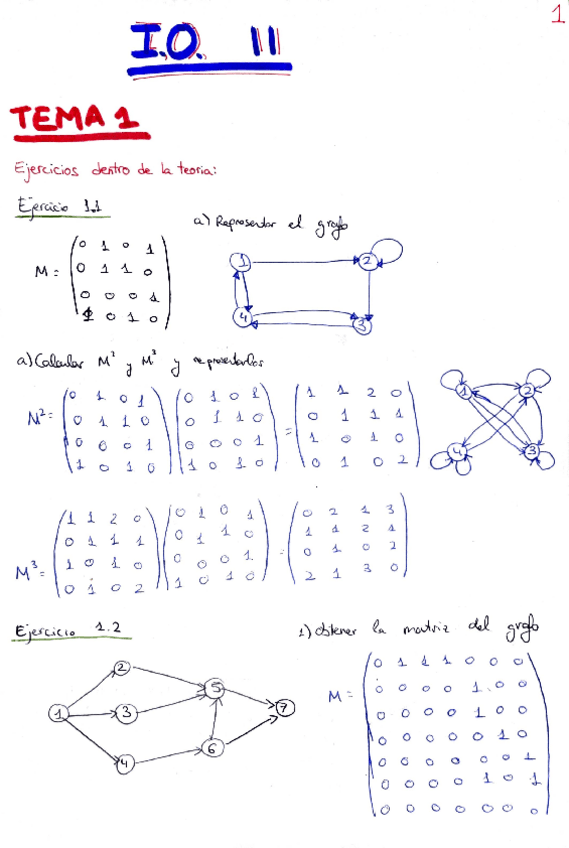 1
I.O. II
TEMA 1
Ejercicios dentro de la teoria:
Ejercicio 1.1
a) Representar el grafo
M = (0 1 0 1
0 1 1 0
0 0 0 1
1 0 1 0)
1 2
4 3
a) Calcular M² y M³ y representarlos
M² = (0 1 0 1 (0 1 0 1 = (1 1 2 0
0 1 1 0 0 1 1 0 0 1 1 1
0 0 0 1 0 0 0 1 1 0 1 0
1 0 1 0) 1 0 1 0) 0 1 0 2)
1 2
4 3
M³ = (1 1 2 0 (0 1 0 1 = (0 2 1 3
0 1 1 1 0 1 1 0 1 1 2 1
1 0 1 0 0 0 0 1 0 1 0 2
0 1 0 2) 1 0 1 0) 2 1 3 0)
Ejercicio 1.2
1) Obtener la matriz del grafo
1 2 3 4 5 6 7
M = (0 1 1 1 0 0 0
0 0 0 0 1 0 0
0 0 0 0 1 0 0
0 0 0 0 0 1 0
0 0 0 0 0 0 1
0 0 0 0 1 0 1
0 0 0 0 0 0 0)